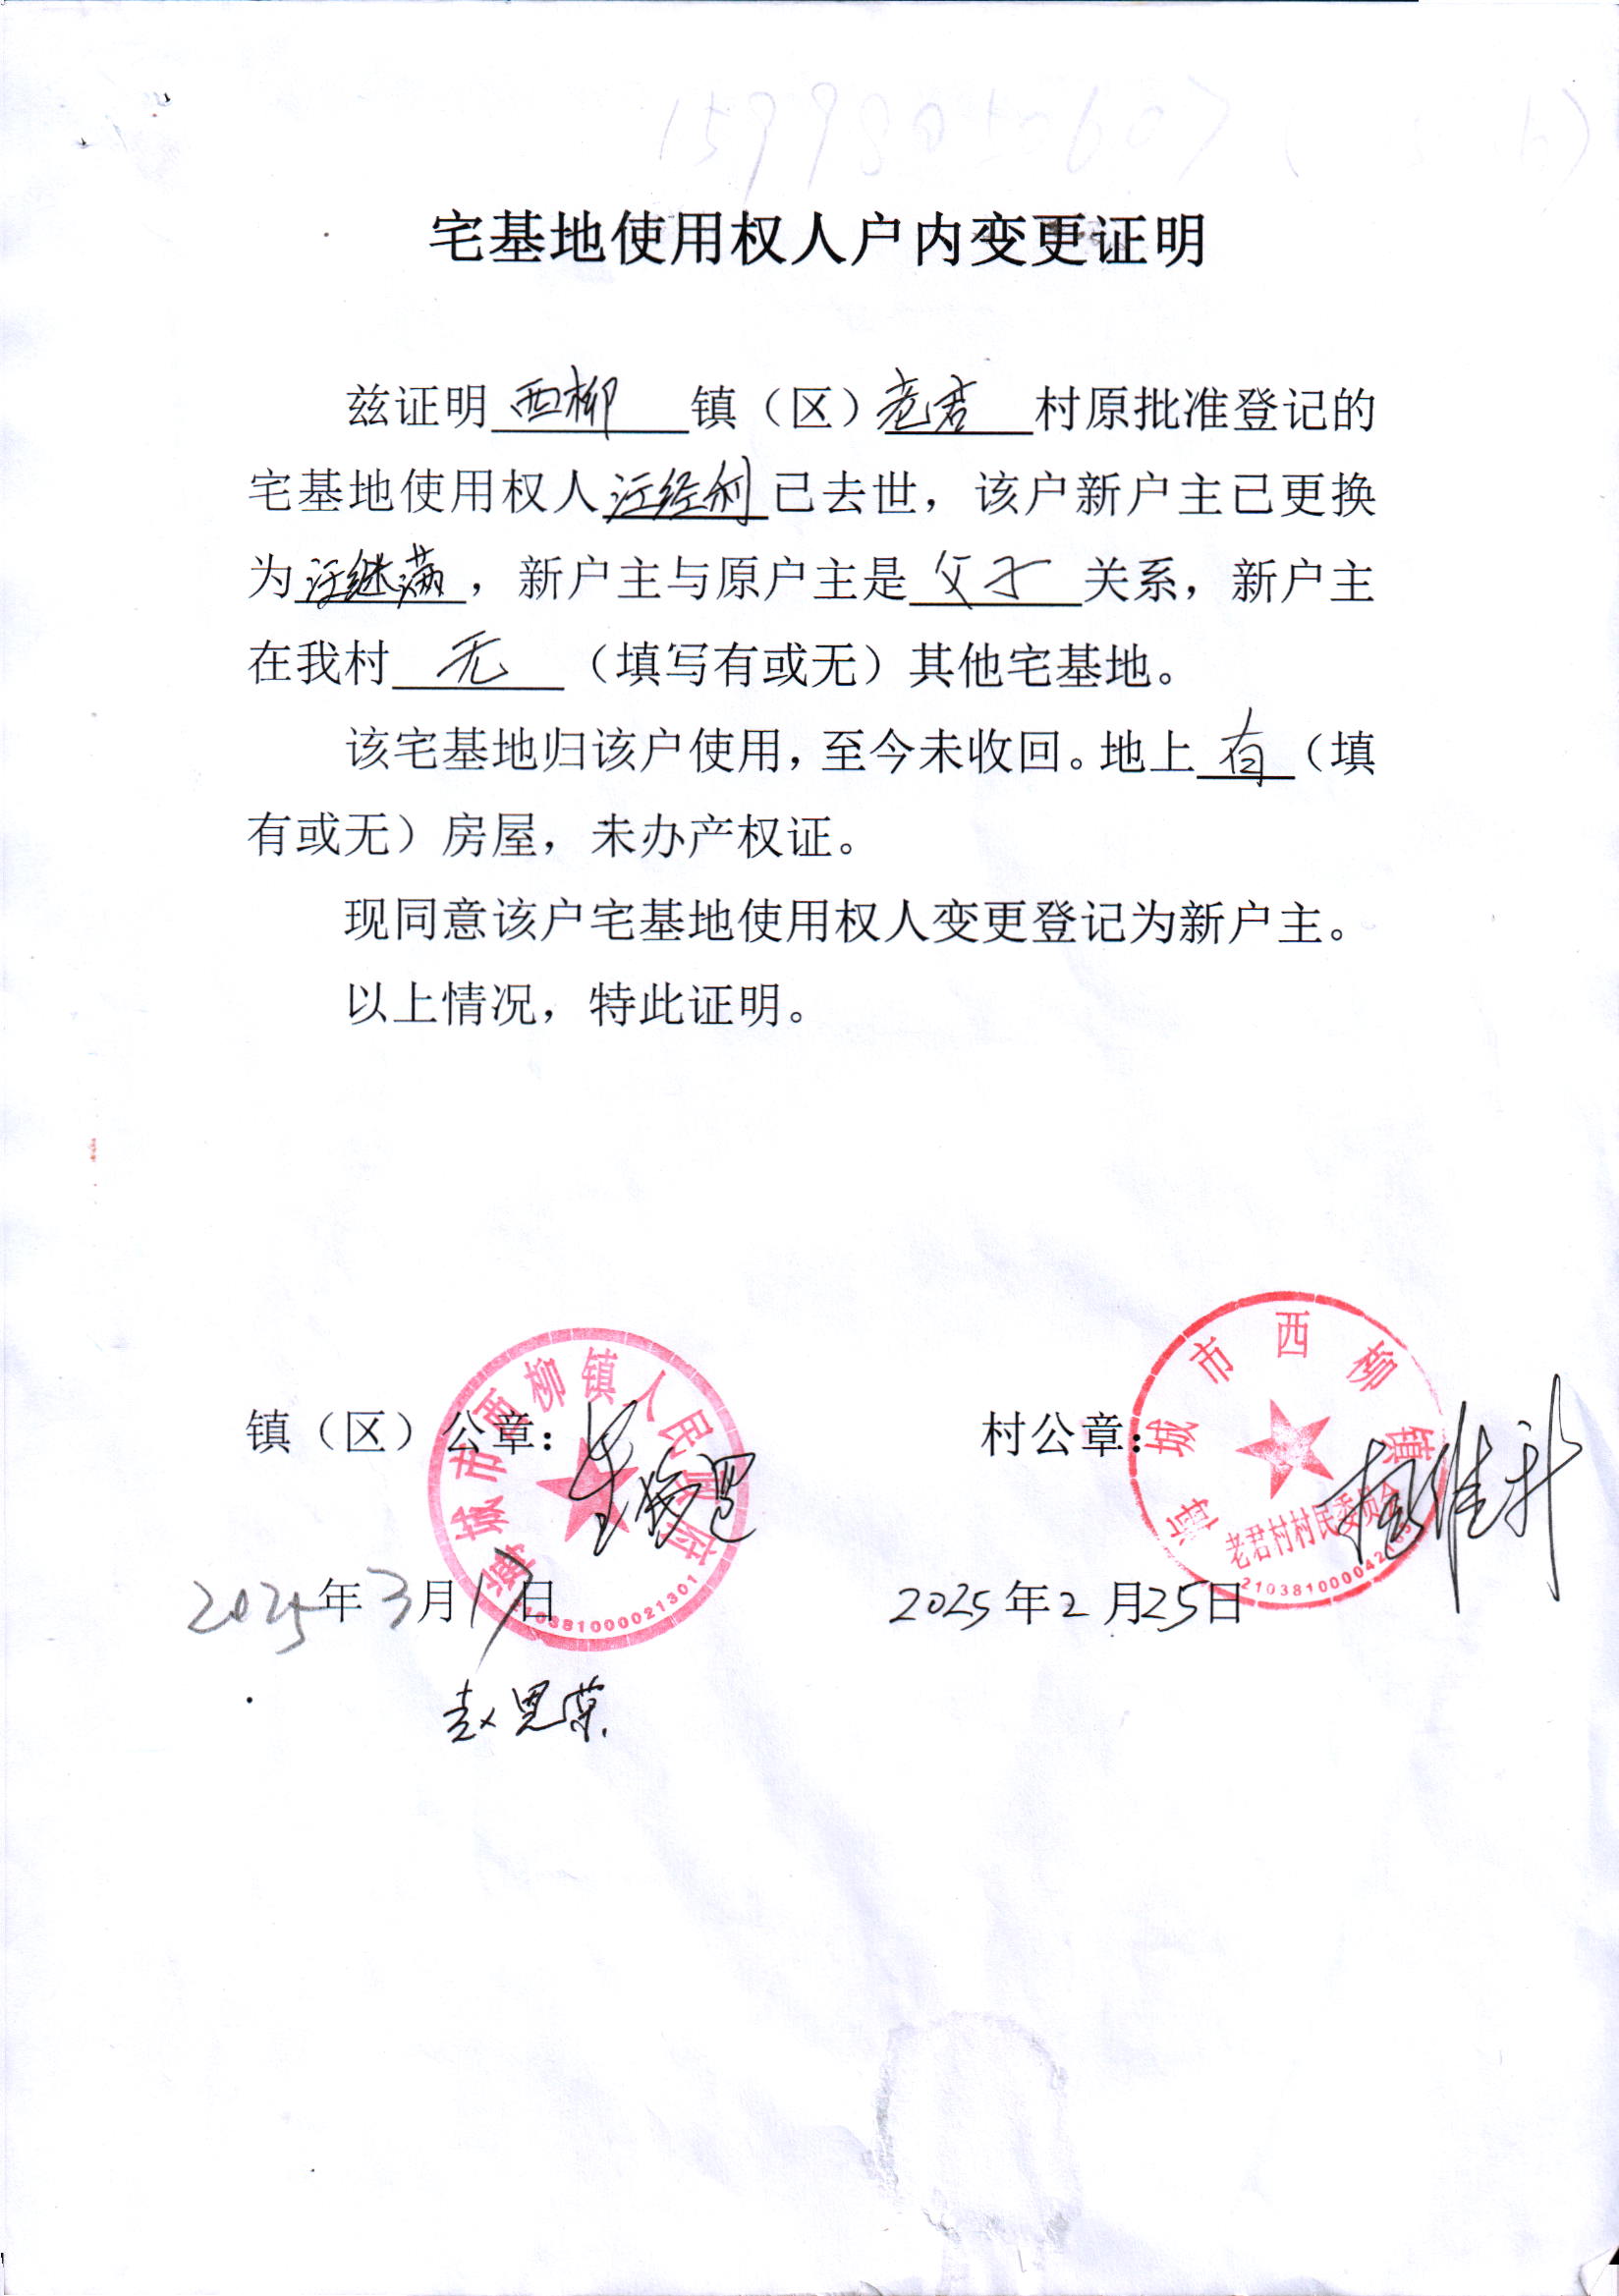 宅基地使用权人户内变更证明
兹证明 西柳 镇（区）老君 村原批准登记的
宅基地使用权人汪经利已去世，该户新户主已更换
为汪继满，新户主与原户主是 父子 关系，新户主
在我村 无 （填写有或无）其他宅基地。
该宅基地归该户使用，至今未收回。地上 有（填
有或无）房屋，未办产权证。
现同意该户宅基地使用权人变更登记为新户主。
以上情况，特此证明。
海城市西柳镇人民政府
2103810000021301
镇（区）公章：
海城市西柳镇
老君村村民委员会
村公章：
2025年3月17日
2025年2月25日
赵恩荣